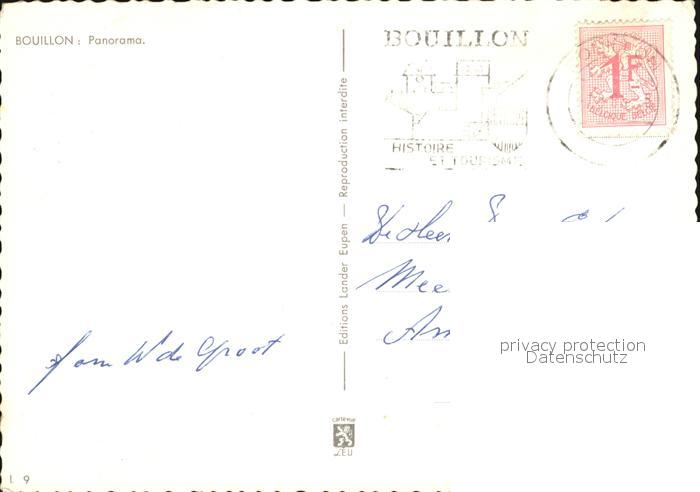 BOUILLON : Panorama.
BOUILLON
HISTOIRE
ET TOURISME
1F
BELGIQUE BELGIE
Editions Lander Eupen — Reproduction interdite
De Heer
Mee
An
fam W de Groot
privacy protection
Datenschutz
carte vue
LEU
L 9